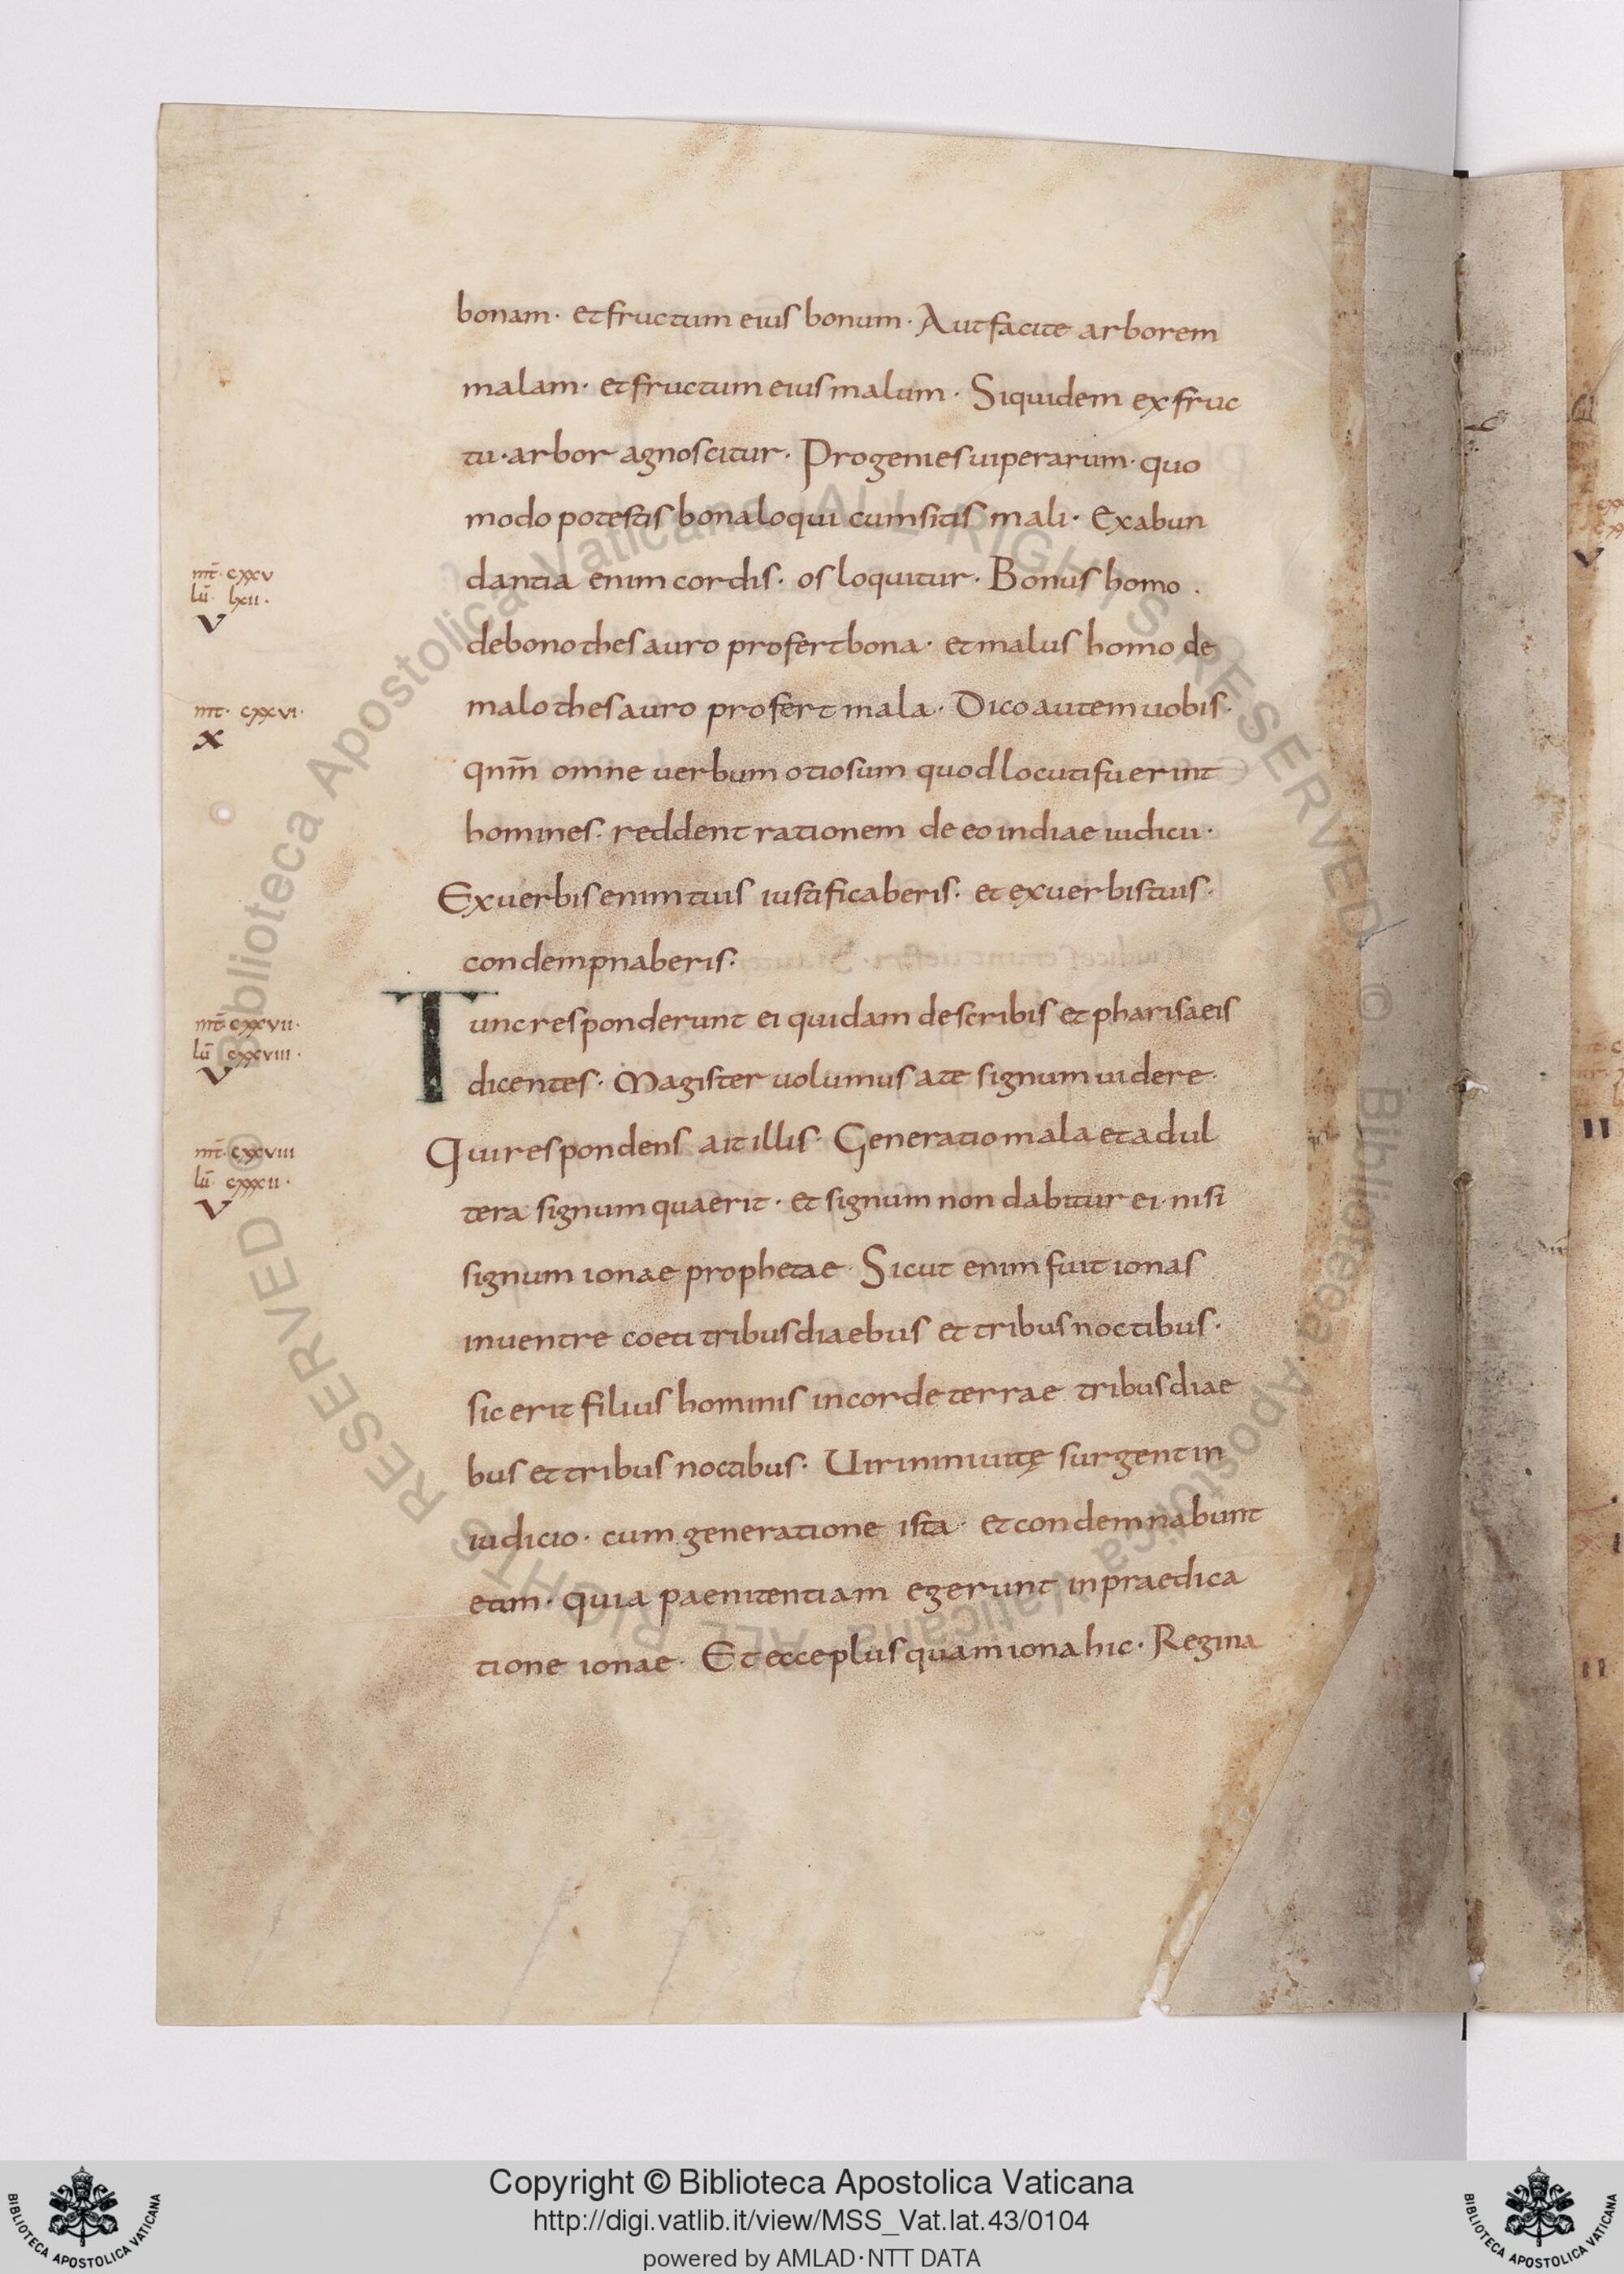 bonam· et fructum eius bonum· Aut facite arborem
malam· et fructum eius malum· Siquidem ex fruc
tu· arbor agnoscitur· Progenies uiperarum· quo
modo potestis bona loqui cum sitis mali· Ex abun
mt̄· cxxv
lū· lxii·
v
dantia enim cordis· os loquitur· Bonus homo·
de bono thesauro profert bona· et malus homo de
mt· cxxvi·
x
malo thesauro profert mala· Dico autem uobis·
qnm̄ omne uerbum otiosum quod locuti fuerint
homines· reddent rationem de eo in diae iudicii·
Ex uerbis enim tuis iustificaberis· et ex uerbis tuis·
condempnaberis·
mt̄ cxxvii·
lū cxxviii·
v
Tunc responderunt ei quidam de scribis et pharisaeis
dicentes· Magister uolumus a te signum uidere·
mt̄· cxxviii
lū· cxxxii·
v
Qui respondens ait illis· Generatio mala et adul
tera signum quaerit· et signum non dabitur ei· nisi
signum ionae prophetae· Sicut enim fuit ionas
in uentre coeti tribus diaebus et tribus noctibus·
sic erit filius hominis in corde terrae tribus diae
bus et tribus noctibus· Uiri niniuitę surgent in
iudicio· cum generatione ista· et condemnabunt
eam· quia paenitentiam egerunt in praedica
tione ionae· Et ecce plus quam iona hic· Regina
© Biblioteca Apostolica Vaticana ALL RIGHTS RESERVED © Biblioteca Apostolica Vaticana ALL RIGHTS RESERVED
Copyright © Biblioteca Apostolica Vaticana
http://digi.vatlib.it/view/MSS_Vat.lat.43/0104
powered by AMLAD·NTT DATA
BIBLIOTECA APOSTOLICA VATICANA
BIBLIOTECA APOSTOLICA VATICANA